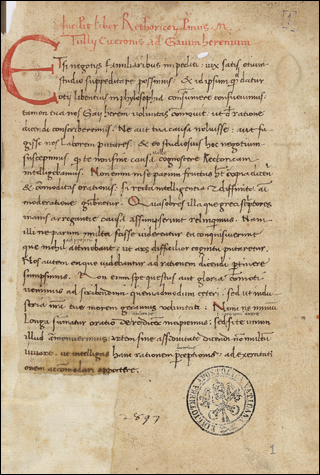 liber Rethoricor Primus M
Tully Ciceronis ad
Etsi negotiis familiaribus impediti vix satis otium
studio suppeditare possimus & id ipsum qd datur
otij libentius in philosophia consumere consuevimus
tamen tua nos voluntas commovit ut ratione
dicendi conscriberemus Ne aut tua causa noluisse aut fu
gisse nos laborem putares & eo studiosius hoc negotium
suscepimus q te non sine causa cognoscere Rectoricam
intelligebamus Non enim in se parum fructus h& copia dicendi
& commoditas orationis si recta intelligentia & diffinita animi
moderatione gubernetur Quas ob res illa que greci scriptores
inanis arrogantie causa assumpserunt reliquimus Nam
illi ne parum multa scisse viderentur ea conquisiverunt
que nihil attinebant ut ars difficilior cognitu putaretur
Nos autem ea que videbantur ad rationem dicendi pertinere
sumpsimus Non enim spe questus aut gloria commoti
venimus ad scribendum quemadmodum ceteri sed ut indu
stria nra tue morem geramus voluntati Nunc ne nimiu
longa sumatur oratio de re dicere incipiemus sed si te unum
illud amonuerimus artem sine assiduitate dicendi non multu
iuvare ut intelligas hanc rationem preceptionis ad exercitati
onem accommodari oportere
2897
BIBLIOTHECA APOSTOLICA VATICANA
1